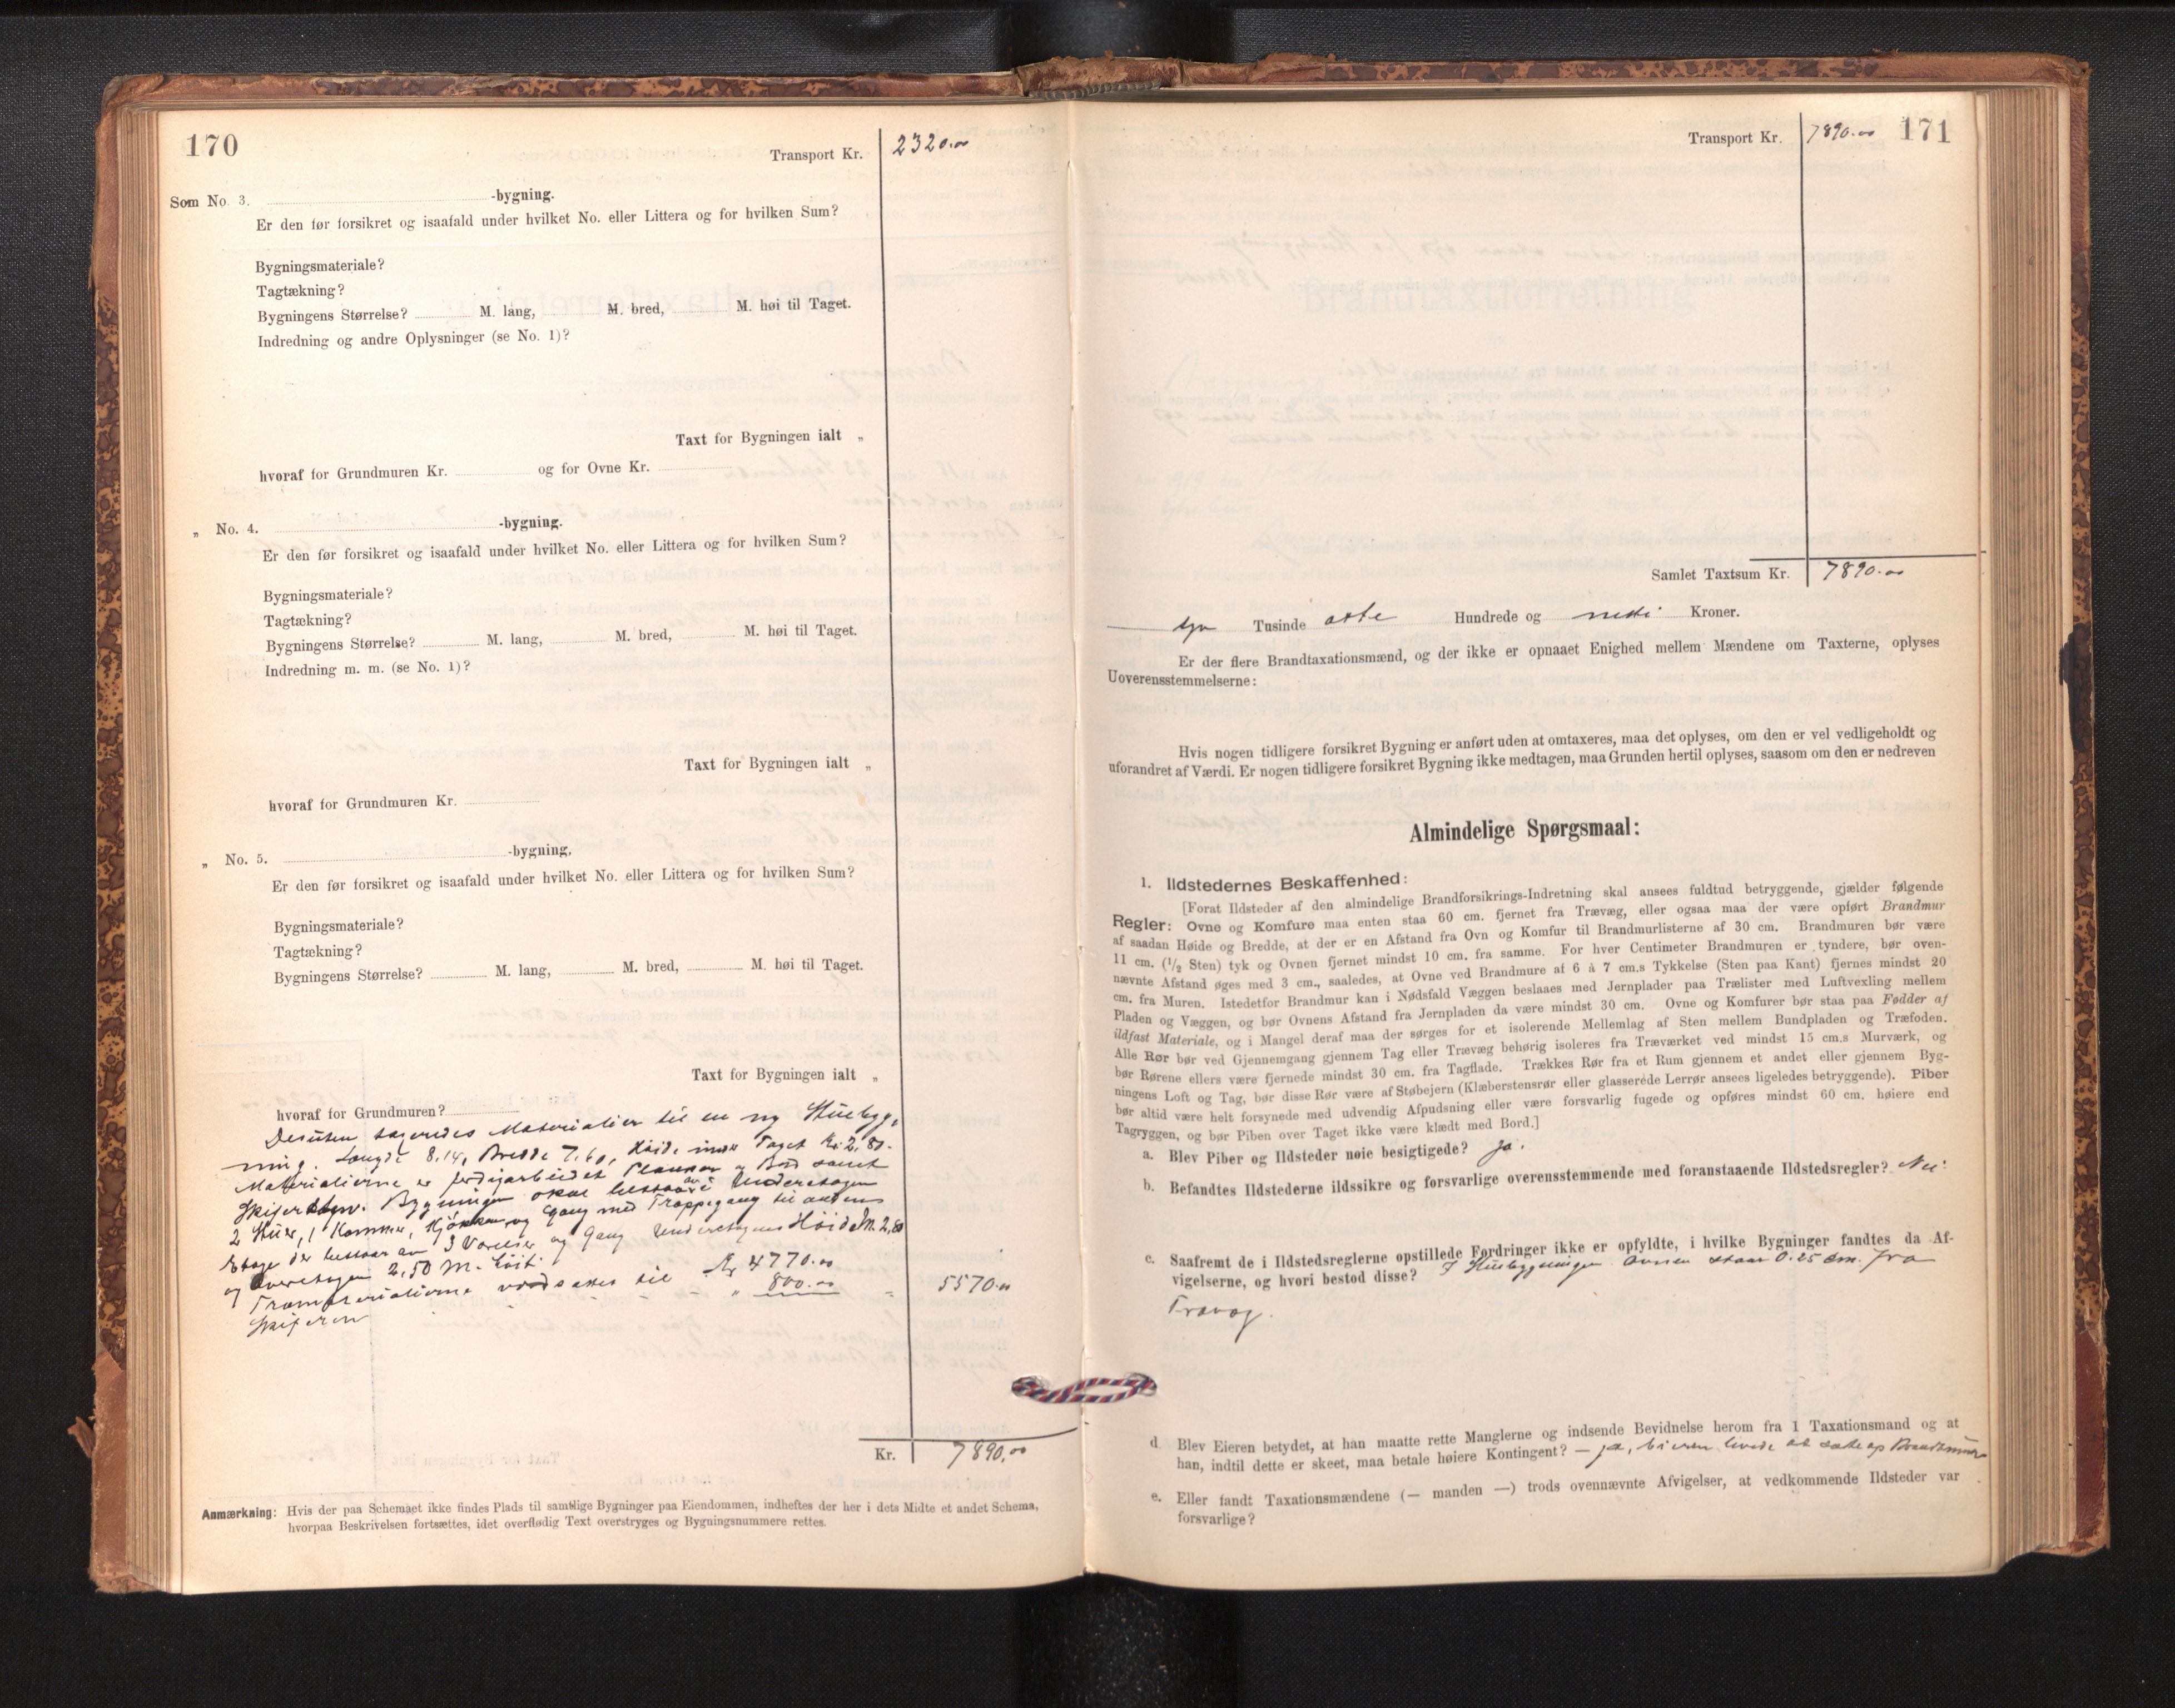 170
Transport Kr. 2320.00
Som No. 3. -bygning.
Er den før forsikret og isaafald under hvilket No. eller Littera og for hvilken Sum?
Bygningsmateriale?
Tagtækning?
Bygningens Størrelse? M. lang, M. bred, M. høi til Taget.
Indredning og andre Oplysninger (se No. 1)?
Taxt for Bygningen ialt „
hvoraf for Grundmuren Kr. og for Ovne Kr.
„ No. 4. -bygning.
Er den før forsikret og isaafald under hvilket No. eller Littera og for hvilken Sum?
Bygningsmateriale?
Tagtækning?
Bygningens Størrelse? M. lang, M. bred, M. høi til Taget.
Indredning m. m. (se No. 1)?
Taxt for Bygningen ialt „
hvoraf for Grundmuren Kr.
„ No. 5. -bygning.
Er den før forsikret og isaafald under hvilket No. eller Littera og for hvilken Sum?
Bygningsmateriale?
Tagtækning?
Bygningens Størrelse? M. lang, M. bred, M. høi til Taget.
Taxt for Bygningen ialt „
hvoraf for Grundmuren?
Desuten taxeredes Materialier til en ny Stuebyg,
ning. Længde 8.14, Bredde 7.60, Høide under Taget 2,80.
Materialierne er færdigarbeidet Planker og Bord samt
Skifersten. Bygningen skal bestaa av i Underetagen
2 Stuer, 1 Kammer, Kjøkken og Gang med Trappegang til anden
Etage der bestaar av 3 Værelser og Gang Underetagens Høide M. 2,80
og Overetagen 2,50 M. høit.
Træmaterialierne værdsattes til Kr 4770.00
Skiferen " 800.00 5570.00
Kr. 7890.00
Anmærkning: Hvis der paa Schemaet ikke findes Plads til samtlige Bygninger paa Eiendommen, indheftes der her i dets Midte et andet Schema,
hvorpaa Beskrivelsen fortsættes, idet overflødig Text overstryges og Bygningsnummere rettes.
Transport Kr. 7890.00 171
Samlet Taxtsum Kr. 7890.00
syv Tusinde otte Hundrede og nitti Kroner.
Er der flere Brandtaxationsmænd, og der ikke er opnaaet Enighed mellem Mændene om Taxterne, oplyses
Uoverensstemmelserne:
Hvis nogen tidligere forsikret Bygning er anført uden at omtaxeres, maa det oplyses, om den er vel vedligeholdt og
uforandret af Værdi. Er nogen tidligere forsikret Bygning ikke medtagen, maa Grunden hertil oplyses, saasom om den er nedreven
Almindelige Spørgsmaal:
1. Ildstedernes Beskaffenhed:
[Forat Ildsteder af den almindelige Brandforsikrings-Indretning skal ansees fuldtud betryggende, gjælder følgende
Regler: Ovne og Komfure maa enten staa 60 cm. fjernet fra Trævæg, eller ogsaa maa der være opført Brandmur
af saadan Høide og Bredde, at der er en Afstand fra Ovn og Komfur til Brandmurlisterne af 30 cm. Brandmuren bør være
11 cm. (1/2 Sten) tyk og Ovnen fjernet mindst 10 cm. fra samme. For hver Centimeter Brandmuren er tyndere, bør oven-
nævnte Afstand øges med 3 cm., saaledes, at Ovne ved Brandmure af 6 à 7 cm.s Tykkelse (Sten paa Kant) fjernes mindst 20
cm. fra Muren. Istedetfor Brandmur kan i Nødsfald Væggen beslaaes med Jernplader paa Trælister med Luftvexling mellem
Pladen og Væggen, og bør Ovnens Afstand fra Jernpladen da være mindst 30 cm. Ovne og Komfurer bør staa paa Fødder af
ildfast Materiale, og i Mangel deraf maa der sørges for et isolerende Mellemlag af Sten mellem Bundpladen og Træfoden.
Alle Rør bør ved Gjennemgang gjennem Tag eller Trævæg behørig isoleres fra Træværket ved mindst 15 cm.s Murværk, og
bør Rørene ellers være fjernede mindst 30 cm. fra Tagflade. Trækkes Rør fra et Rum gjennem et andet eller gjennem Byg-
ningens Loft og Tag, bør disse Rør være af Støbejern (Klæberstensrør eller glasserede Lerrør ansees ligeledes betryggende). Piber
bør altid være helt forsynede med udvendig Afpudsning eller være forsvarlig fugede og opføres mindst 60 cm. høiere end
Tagryggen, og bør Piben over Taget ikke være klædt med Bord.]
a. Blev Piber og Ildsteder nøie besigtigede? Ja.
b. Befandtes Ildstederne ildssikre og forsvarlige overensstemmende med foranstaaende Ildstedsregler? Nei
c. Saafremt de i Ildstedsreglerne opstillede Fordringer ikke er opfyldte, i hvilke Bygninger fandtes da Af-
vigelserne, og hvori bestod disse? I Stuebygningen. Ovnen staar 0.25 cm. fra
Trævæg.
d. Blev Eieren betydet, at han maatte rette Manglerne og indsende Bevidnelse herom fra 1 Taxationsmand og at
han, indtil dette er skeet, maa betale høiere Kontingent? – ja, Eieren lovede at sætte op Brandmur
e. Eller fandt Taxationsmændene (— manden —) trods ovennævnte Afvigelser, at vedkommende Ildsteder var
forsvarlige?